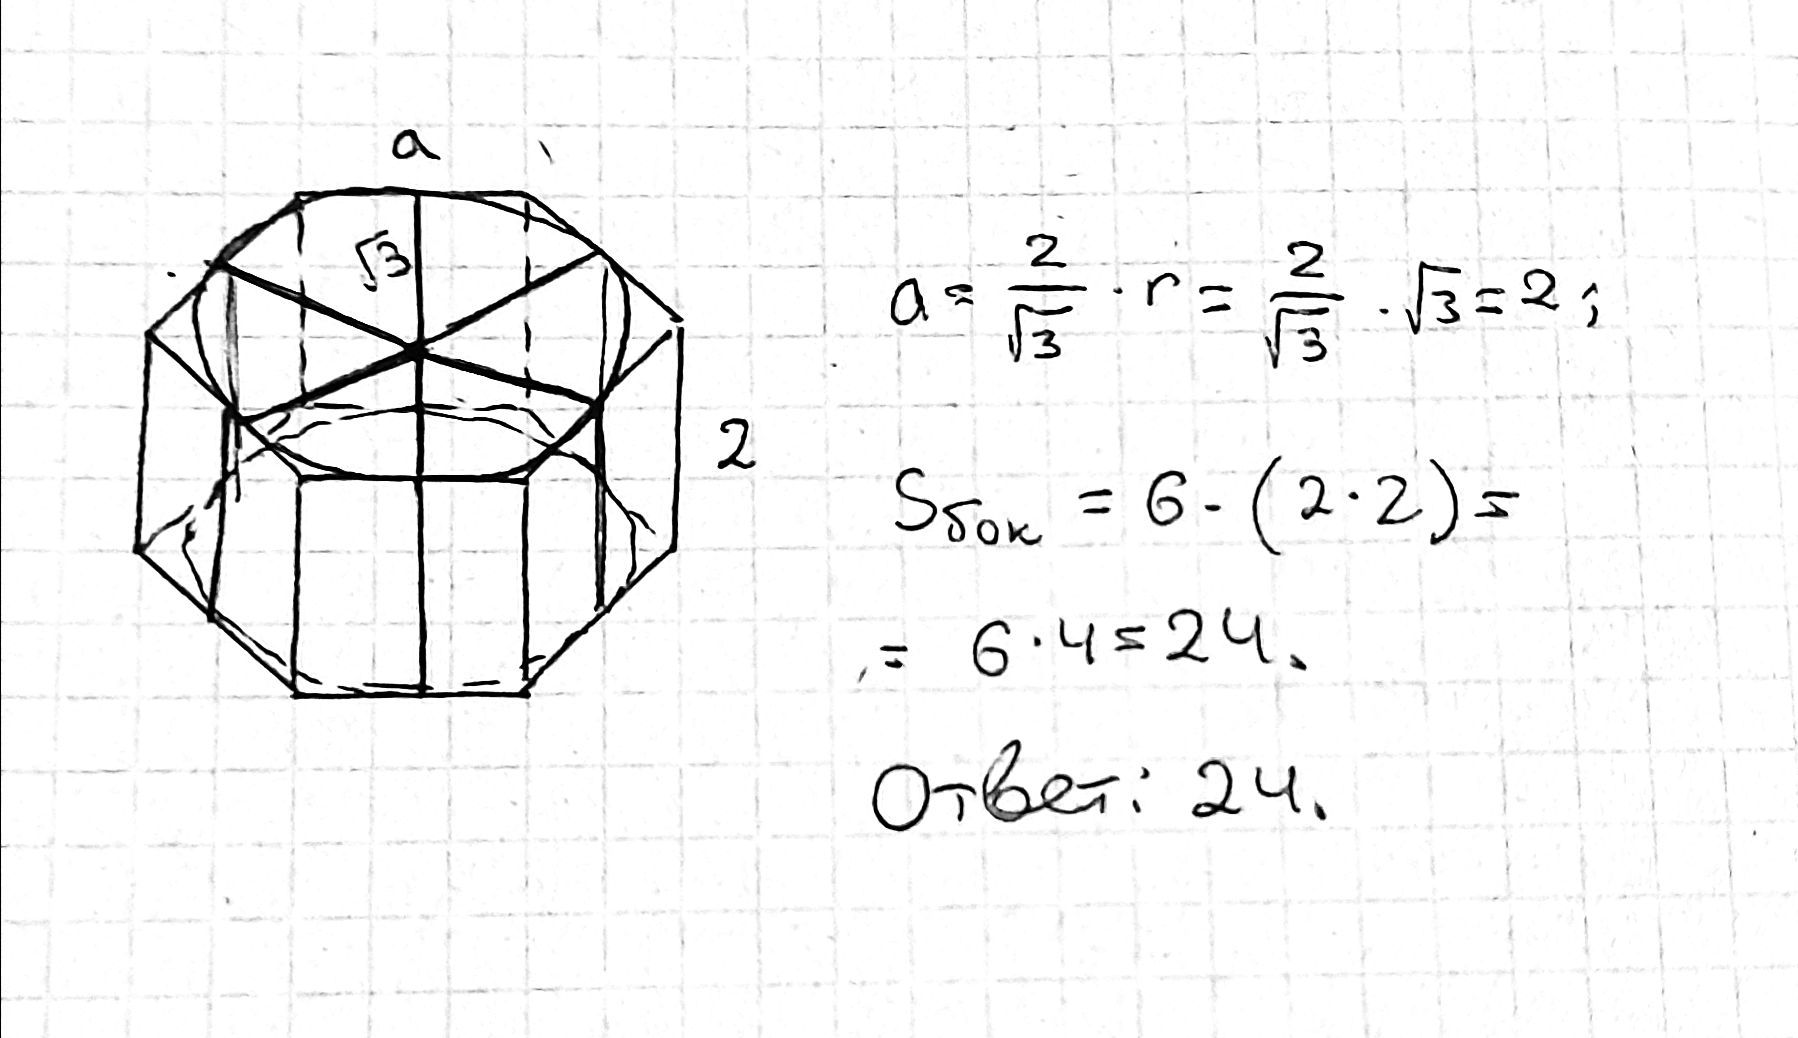 a
√3
2
a = 2/√3 · r = 2/√3 · √3 = 2;
Sбок = 6 · (2 · 2) =
= 6 · 4 = 24.
Ответ: 24.